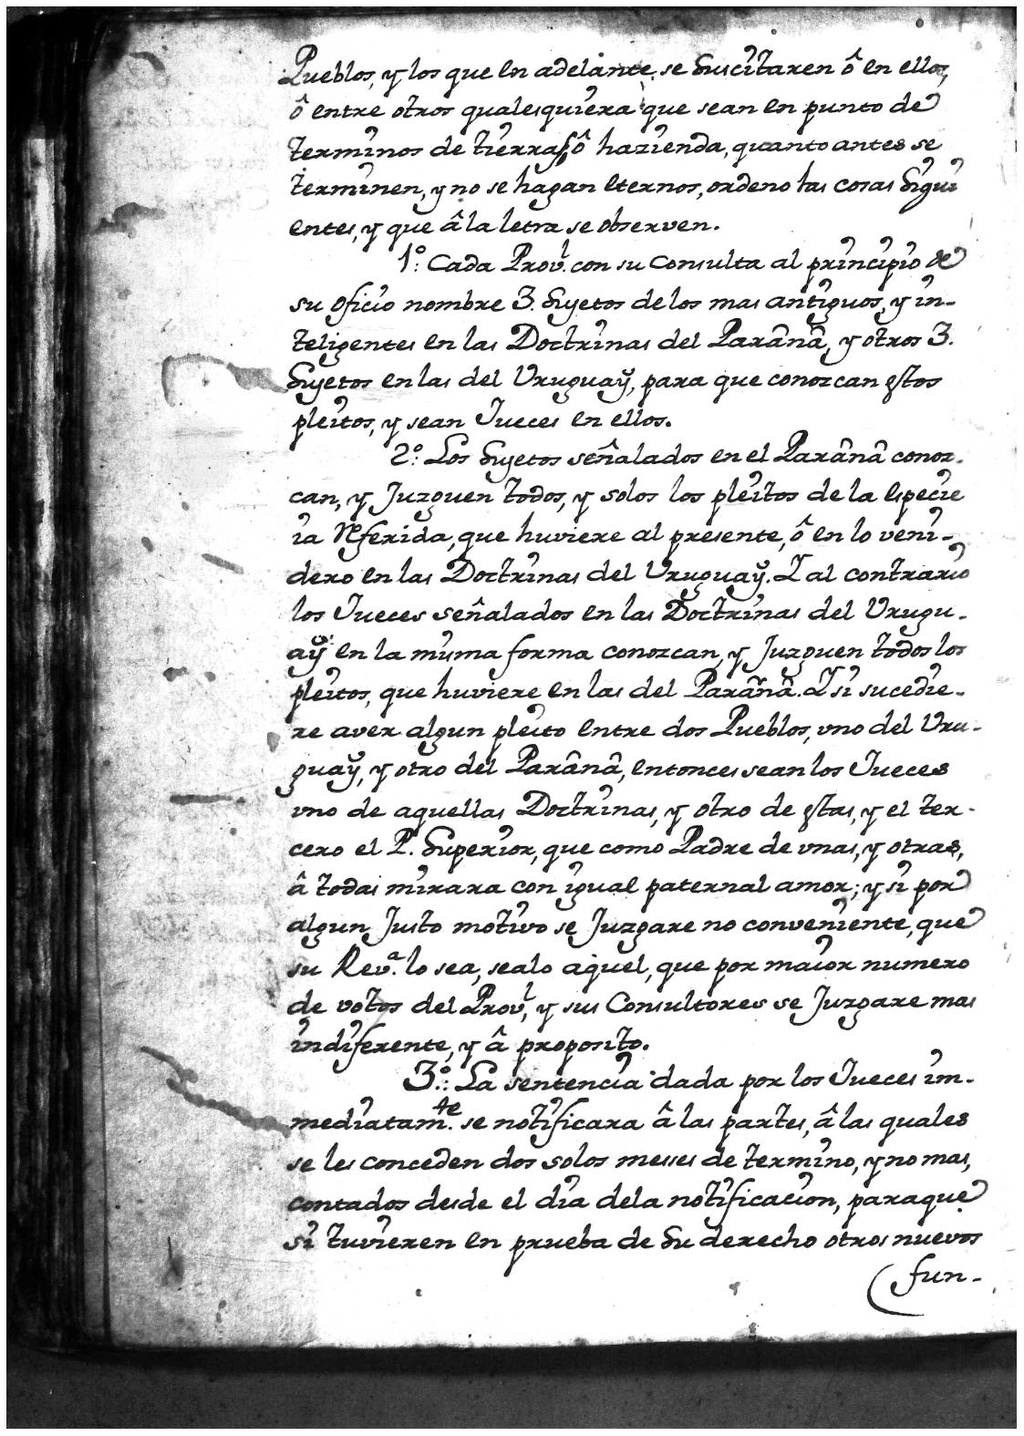 Pueblos, y los que en adelante se suscitaren ô en ellos,
ô entre otros qualesquiera que sean en punto de
terminos de tierras, ô hazienda, quanto antes se
terminen, y no se hagan eternos, ordeno las cosas sigui
entes, y que â la letra se observen.
1.º Cada Prov.l con su Consulta al principio de
su oficio nombre 3. Sujetos de los mas antiguos, y in-
teligentes en las Doctrinas del Parânâ, y otros 3.
Sujetos en las del Uruguaÿ, para que conozcan estos
pleitos, y sean Jueces en ellos.
2.º Los Sujetos señalados en el Parânâ conoz-
can, y Juzguen todos, y solos los pleitos de la especie
ia Referida, que huviere al presente, ô en lo veni-
dero en las Doctrinas del Uruguaÿ. Y al contrario
los Jueces señalados en las Doctrinas del Urugu-
aÿ en la misma forma conozcan, y Juzguen todos los
pleitos, que huviere en las del Parânâ. Y si sucedie-
re aver algun pleito entre dos Pueblos, uno del Uru-
guaÿ, y otro del Parânâ, entonces sean los Jueces
uno de aquellas Doctrinas, y otro de estas, y el ter-
cero el P. Superior, que como Padre de unas, y otras,
â todas mirara con igual paternal amor; y si por
algun Justo motivo se Juzgare no conveniente, que
su Rev.a lo sea, sealo aquel, que por maior numero
de votos del Prov.l, y sus Consultores se Juzgare mas
indiferente, y â proposito.
3.º La sentencia dada por los Jueces im-
mediatam.te se notificara â las partes, â las quales
se les conceden dos solos meses de termino, y no mas,
contados desde el dia dela notificacion, paraque
si tuvieren en prueba de su derecho otros nuevos
fun-